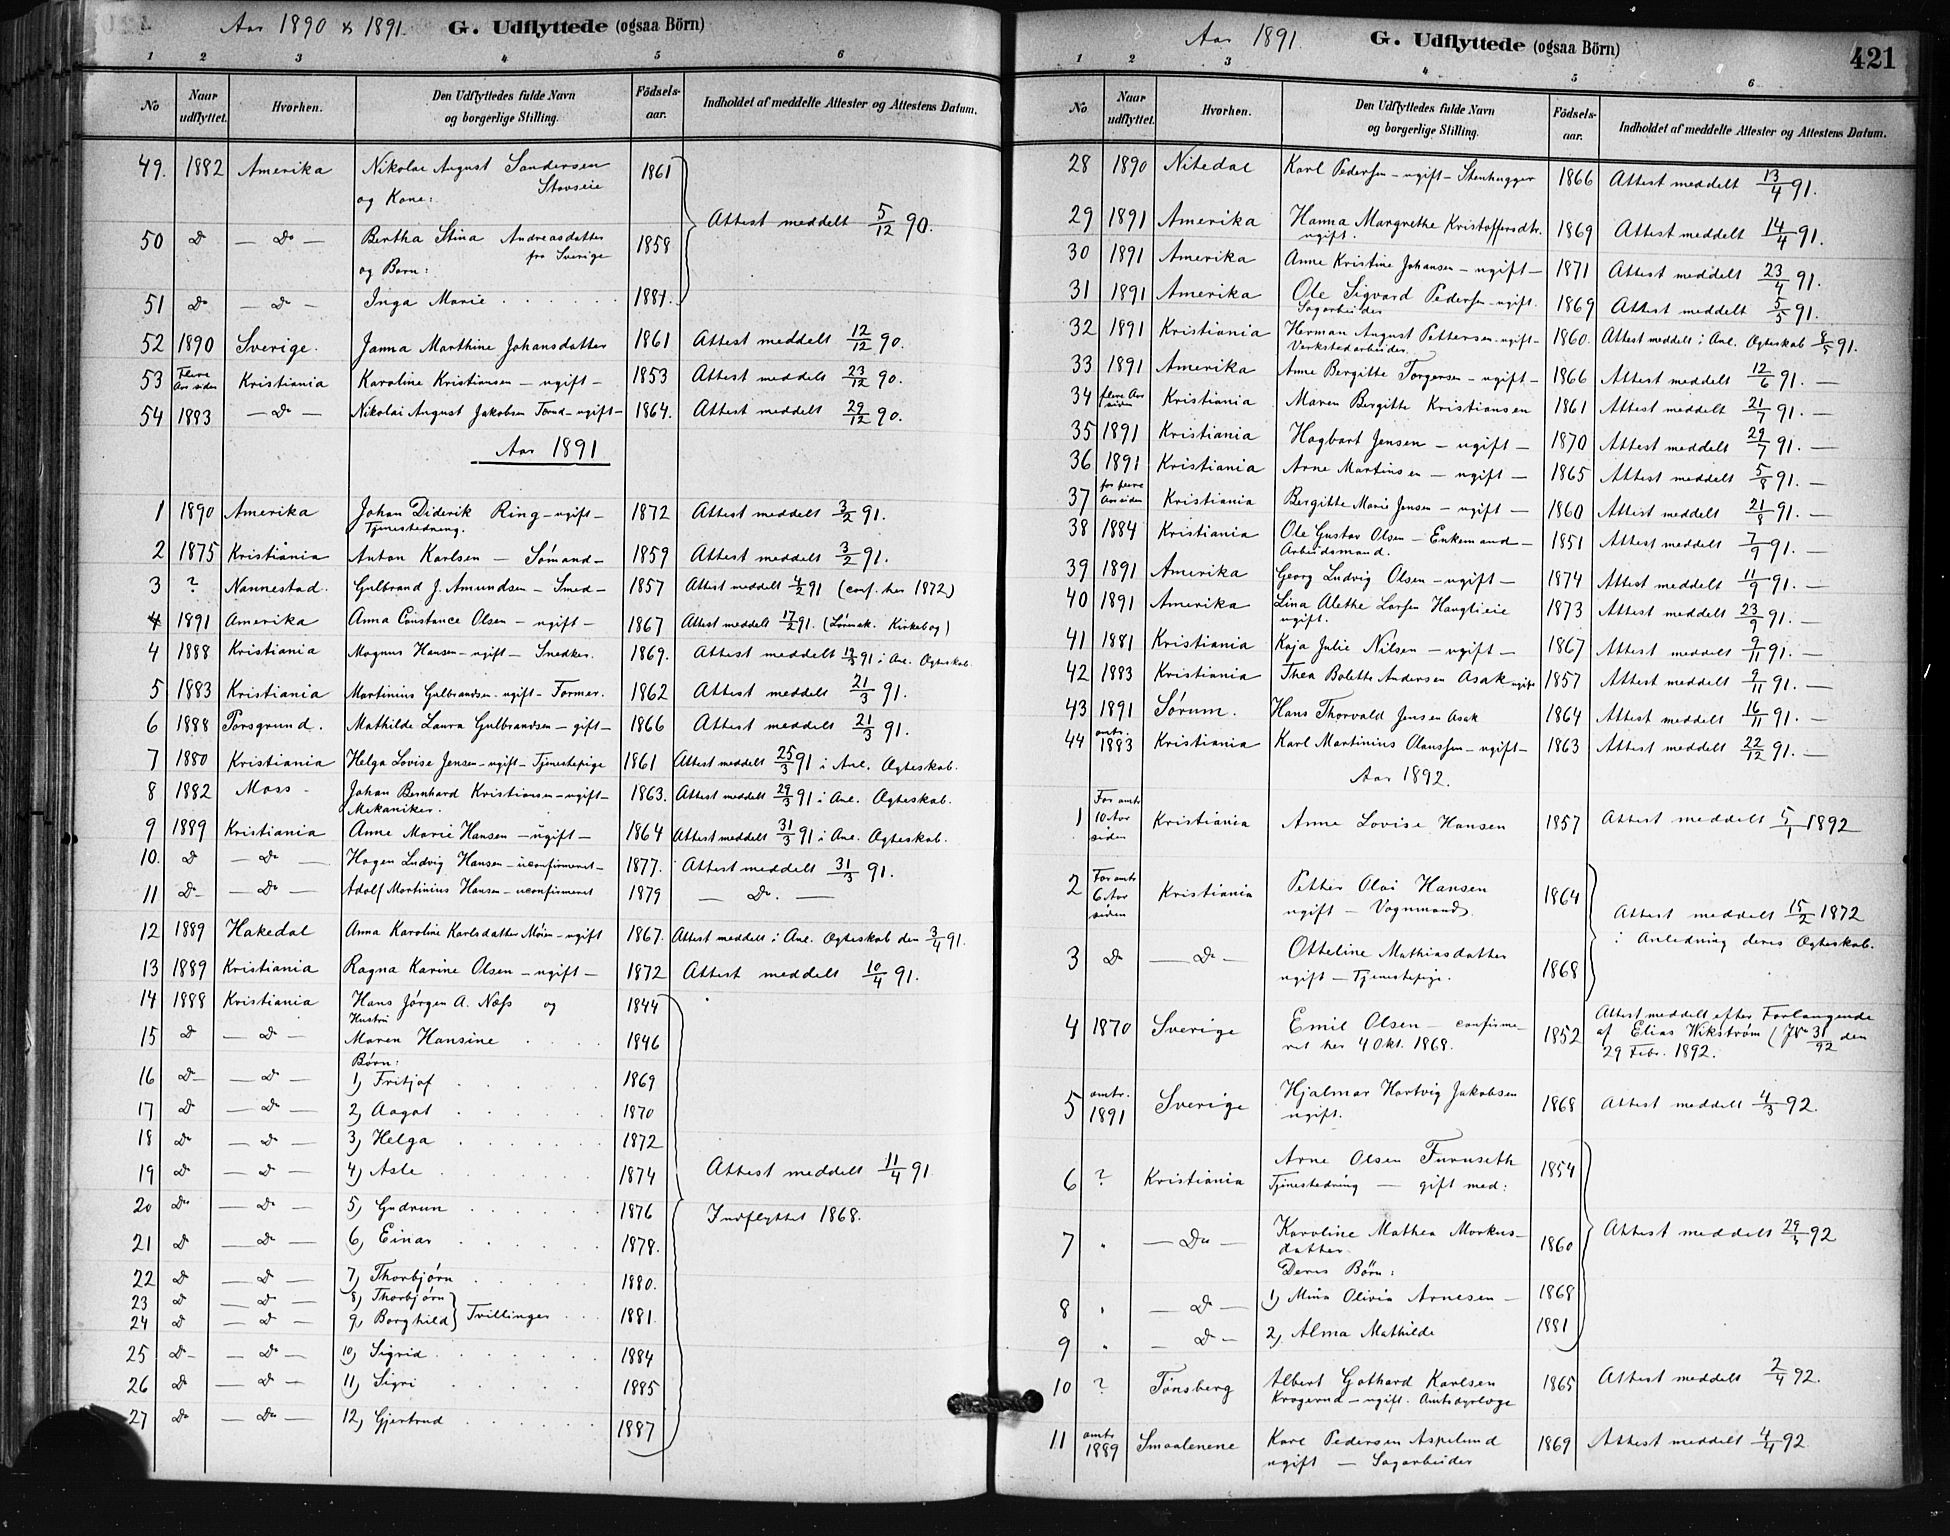 Aar 1890 & 1891. G. Udflyttede (ogsaa Börn)
1 2 3 4 5 6
No Naar udflyttet. Hvorhen. Den Udflyttedes fulde Navn og borgerlige Stilling. Födsels-aar. Indholdet af meddelte Attester og Attestens Datum.
49. 1882 Amerika Nikolai August Sandersen 1861
Stovseie
og Kone:
Attest meddelt 5/12 90.
50 Do — Do — Bertha Stina Andreasdatter 1858
fra Sverige
og Barn:
51 Do — Do — Inga Marie 1881.
52 1890 Sverige. Janna Marthine Johansdatter 1861 Attest meddelt 12/12 90.
53 Flere Aar siden Kristiania Karoline Kristiansen — ugift — 1853 Attest meddelt 23/12 90.
54 1883 — Do — Nikolai August Jakobsen — ugift — 1864. Attest meddelt 29/12 90.
Aar 1891
1 1890 Amerika Johan Diderik Ring — ugift — 1872 Attest meddelt 3/2 91.
Tjenestedreng.
2 1875 Kristiania Anton Karlsen — Sömand — 1859 Attest meddelt 3/2 91.
3 ? Nannestad. Gulbrand J. Amundsen — Smed — 1857 Attest meddelt 4/2 91 (conf. her 1872)
4 1891 Amerika Anna Constance Olsen — ugift — 1867 Attest meddelt 17/2 91. (Kirkebog)
4 1888 Kristiania Magnus Hansen — ugift — Snedker. 1869. Attest meddelt 91 i Anl. Ægteskab.
5 1883 Kristiania Martinius Gulbrandsen — ugift — Former. 1862 Attest meddelt 21/3 91.
6 1888 Porsgrund. Mathilde Laura Gulbrandsen — gift — 1866 Attest meddelt 21/3 91.
7 1880 Kristiania Helga Lovise Jensen — ugift — Tjenestepige 1861 Attest meddelt 25/3 91 i Anl. Ægteskab.
8 1882 Moss — Johan Bernhard Kristiansen — ugift — 1863. Attest meddelt 29/3 91 i Anl. Ægteskab.
Mekaniker.
9 1889 Kristiania Anne Marie Hansen — ugift — 1864 Attest meddelt 31/3 91 i Anl. Ægteskab.
10. Do — Do — Hagen Ludvig Hansen — uconfirmeret — 1877. Attest meddelt 31/3 91.
11 Do — Do — Adolf Martinius Hansen — uconfirmeret 1879 — Do. —
12 1889 Hakedal Anna Karoline Karlsdatter Moen — ugift 1867. Attest meddelt i Anl. Ægteskab den 3/4 91.
13 1889 Kristiania Ragna Karine Olsen — ugift — 1872 Attest meddelt 10/4 91.
14 1888 Kristiania Hans Jörgen A. Næss og 1844
Hustru
15 Do — Do — Maren Hansine 1846
Børn:
16 Do — Do — 1) Fritjof 1869
17 Do — Do — 2) Aagot 1870
18 Do — Do — 3) Helga 1872
19 Do — Do — 4) Asle 1874 Attest meddelt 11/4 91
20 Do — Do — 5) Gudrun 1876 Indflyttet 1868.
21 Do — Do — 6) Einar 1878.
22 Do — Do — 7) Thorbjörn 1880.
23 Do — Do — 8) Thorbjörn
24 Do — Do — 9) Borghild } Tvillinger 1881.
25 Do — Do — 10) Sigrid 1884
26 Do — Do — 11) Sigri 1885
27 Do — Do — 12) Gjertrud 1887
Aar 1891. G. Udflyttede (ogsaa Börn) 421
1 2 3 4 5 6
No Naar udflyttet. Hvorhen. Den Udflyttedes fulde Navn og borgerlige Stilling. Födsels-aar. Indholdet af meddelte Attester og Attestens Datum.
28 1890 Nitedal Karl Pedersen — ugift — Stenhugger 1866 Attest meddelt 13/4 91.
29 1891 Amerika Hanna Margrethe Kristoffersdtr. 1869 Attest meddelt 14/4 91.
ugift.
30 1891 Amerika Anne Kristine Johansen — ugift — 1871 Attest meddelt 23/4 91.
31 1891 Amerika Ole Sigvard Pedersen — ugift. 1869 Attest meddelt 5/5 91.
Sagarbeider
32 1891 Kristiania Herman August Pettersen — ugift — 1860. Attest meddelt i Anl. Ægteskab 8/5 91.
Verkstedarbeider.
33 1891 Amerika Anne Bergitte Torgersen — ugift — 1866 Attest meddelt 12/6 91. —
34 flere Aar siden Kristiania Maren Bergitte Kristiansen 1861 Attest meddelt 21/7 91. —
35 1891 Kristiania Hagbart Jensen — ugift — 1870 Attest meddelt 29/7 91. —
36 1891 Kristiania Arne Martinsen — ugift — 1865 Attest meddelt 5/8 91. —
37 for flere Aar siden Kristiania Bergitte Marie Jensen — ugift — 1860 Attest meddelt 21/8 91. —
38 1884 Kristiania Ole Gustav Olsen — Enkemand — 1851 Attest meddelt 7/9 91. —
Arbeidsmand.
39 1891 Amerika Georg Ludvig Olsen — ugift — 1874 Attest meddelt 11/9 91. —
40 1891 Amerika Lina Alethe Larsen Hauglieie 1873 Attest meddelt 23/9 91. —
ugift.
41 1881 Kristiania Kaja Julie Nilsen — ugift — 1867 Attest meddelt 9/11 91. —
42 1883 Kristiania Thea Bolette Andersen Asak ugift 1857 Attest meddelt 9/11 91. —
43 1891 Sørum. Hans Thorvald Jensen Asak 1864 Attest meddelt 16/11 91. —
44 omtr. 1883 Kristiania Karl Martinius Olaussen — ugift — 1863 Attest meddelt 22/12 91. —
Aar 1892.
1 For omtr 10 Aar siden Kristiania Anne Lovise Hansen 1857 Attest meddelt 5/1 1892
2 For omtr 6 Aar siden Kristiania Petter Olai Hansen 1864
ugift — Vognmand.
Attest meddelt 15/2 1872
i Anledning deres Ægteskab.
3 Do — Do — Otteline Mathiasdatter 1868
ugift — Tjenestepige.
4 1870 Sverige Emil Olsen — confirme- 1852 Attest meddelt efter Forlangende
ret her 4 Okt. 1868. af Elias Wikström (J No 31/92 den
29 Febr. 1892.
5 omtr. 1891 Sverige Hjalmar Hartvig Jakobsen 1868 Attest meddelt 4/3 92.
ugift.
6 ? Kristiania Arne Olsen Furuseth 1854
Tjenestedreng — gift med:
7 " — Do — Karoline Mathea Markus- 1860 Attest meddelt 29/3 92
datter.
Deres Børn:
8 " — Do — 1) Mina Olivia Arnesen — 1868
9 " — Do — 2) Alma Mathilde 1881
10 ? Tönsberg Albert Gothard Karlsen 1865 Attest meddelt 2/4 92.
Krogerud — ugift. Amtsdyrlæge
11 omtr 1889 Smaalenene Karl Pedersen Aspelund 1869 Attest meddelt 4/4 92
ugift — Sagarbeider